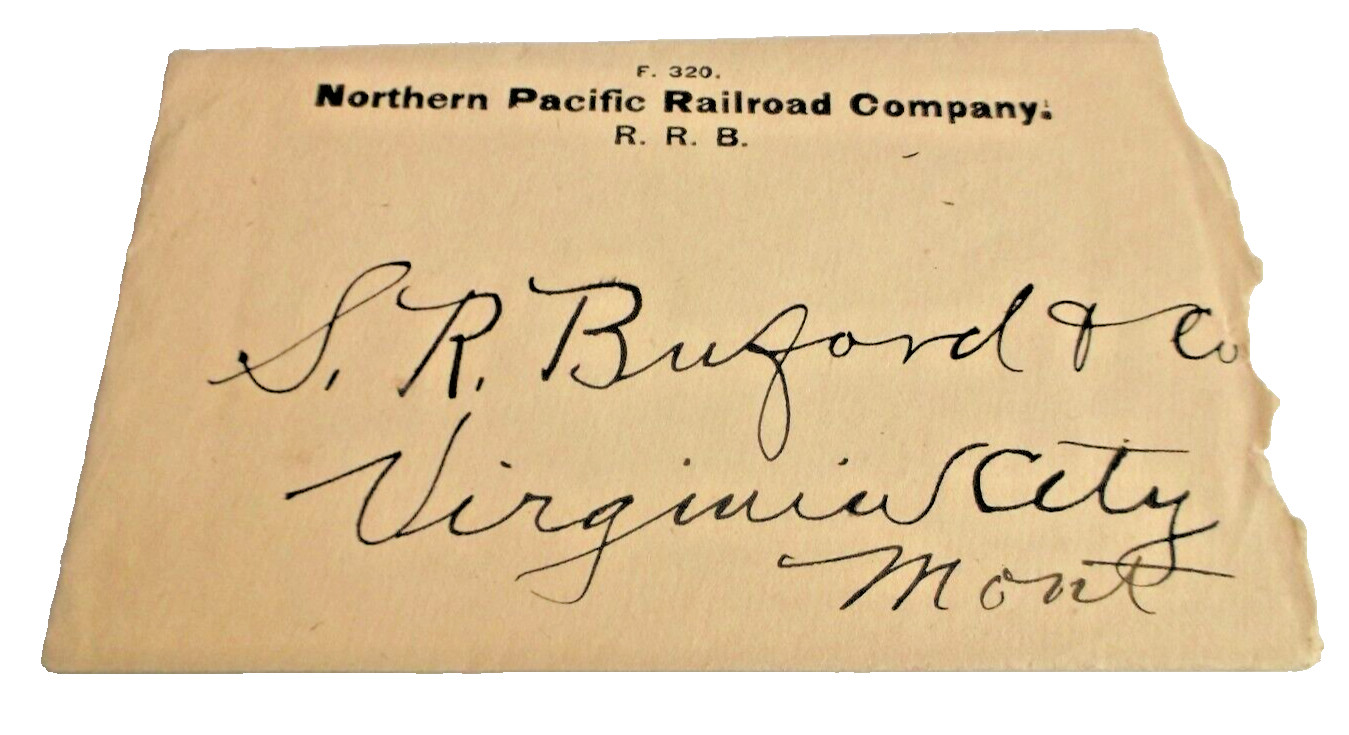 F. 320.
Northern Pacific Railroad Company.
R. R. B.
S. R. Buford & Co
Virginia City
Mont